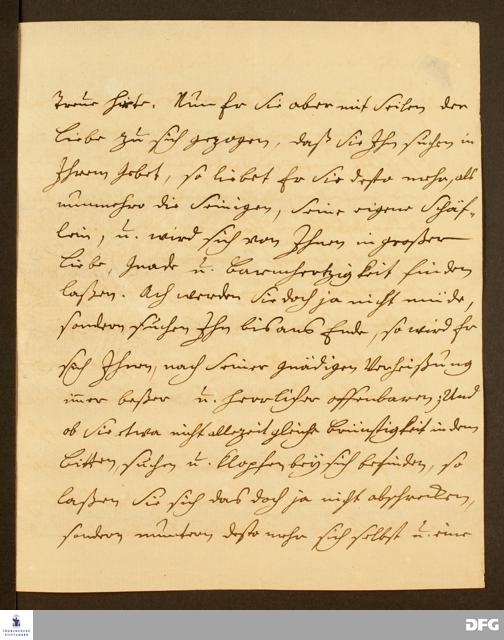 Treue Hirte. Nun Er Sie aber mit Seilen der
Liebe zu sich gezogen, daß Sie Ihn suchen in
Ihrem Gebet, so liebet Er Sie desto mehr, als
nunmehro die Seinigen, seine eigene Schäf-
lein, u. wird sich von Ihnen in großer
Liebe, Gnade u. Barmhertzigkeit finden
laßen. Ach werden Sie doch ja nicht müde,
sondern suchen Ihn bis ans Ende, so wird Er
sich Ihnen, nach seiner gnädigen Verheißung
immer beßer u. herrlicher offenbaren; Und
ob Sie etwa nicht allezeit gleiche Brünstigkeit in dem
bitten, suchen u. klopfen bey sich befinden, so
laßen Sie sich das doch ja nicht abschrecken,
sondern muntern desto mehr sich selbst u. eine
FRANCKESCHE
STIFTUNGEN
DFG